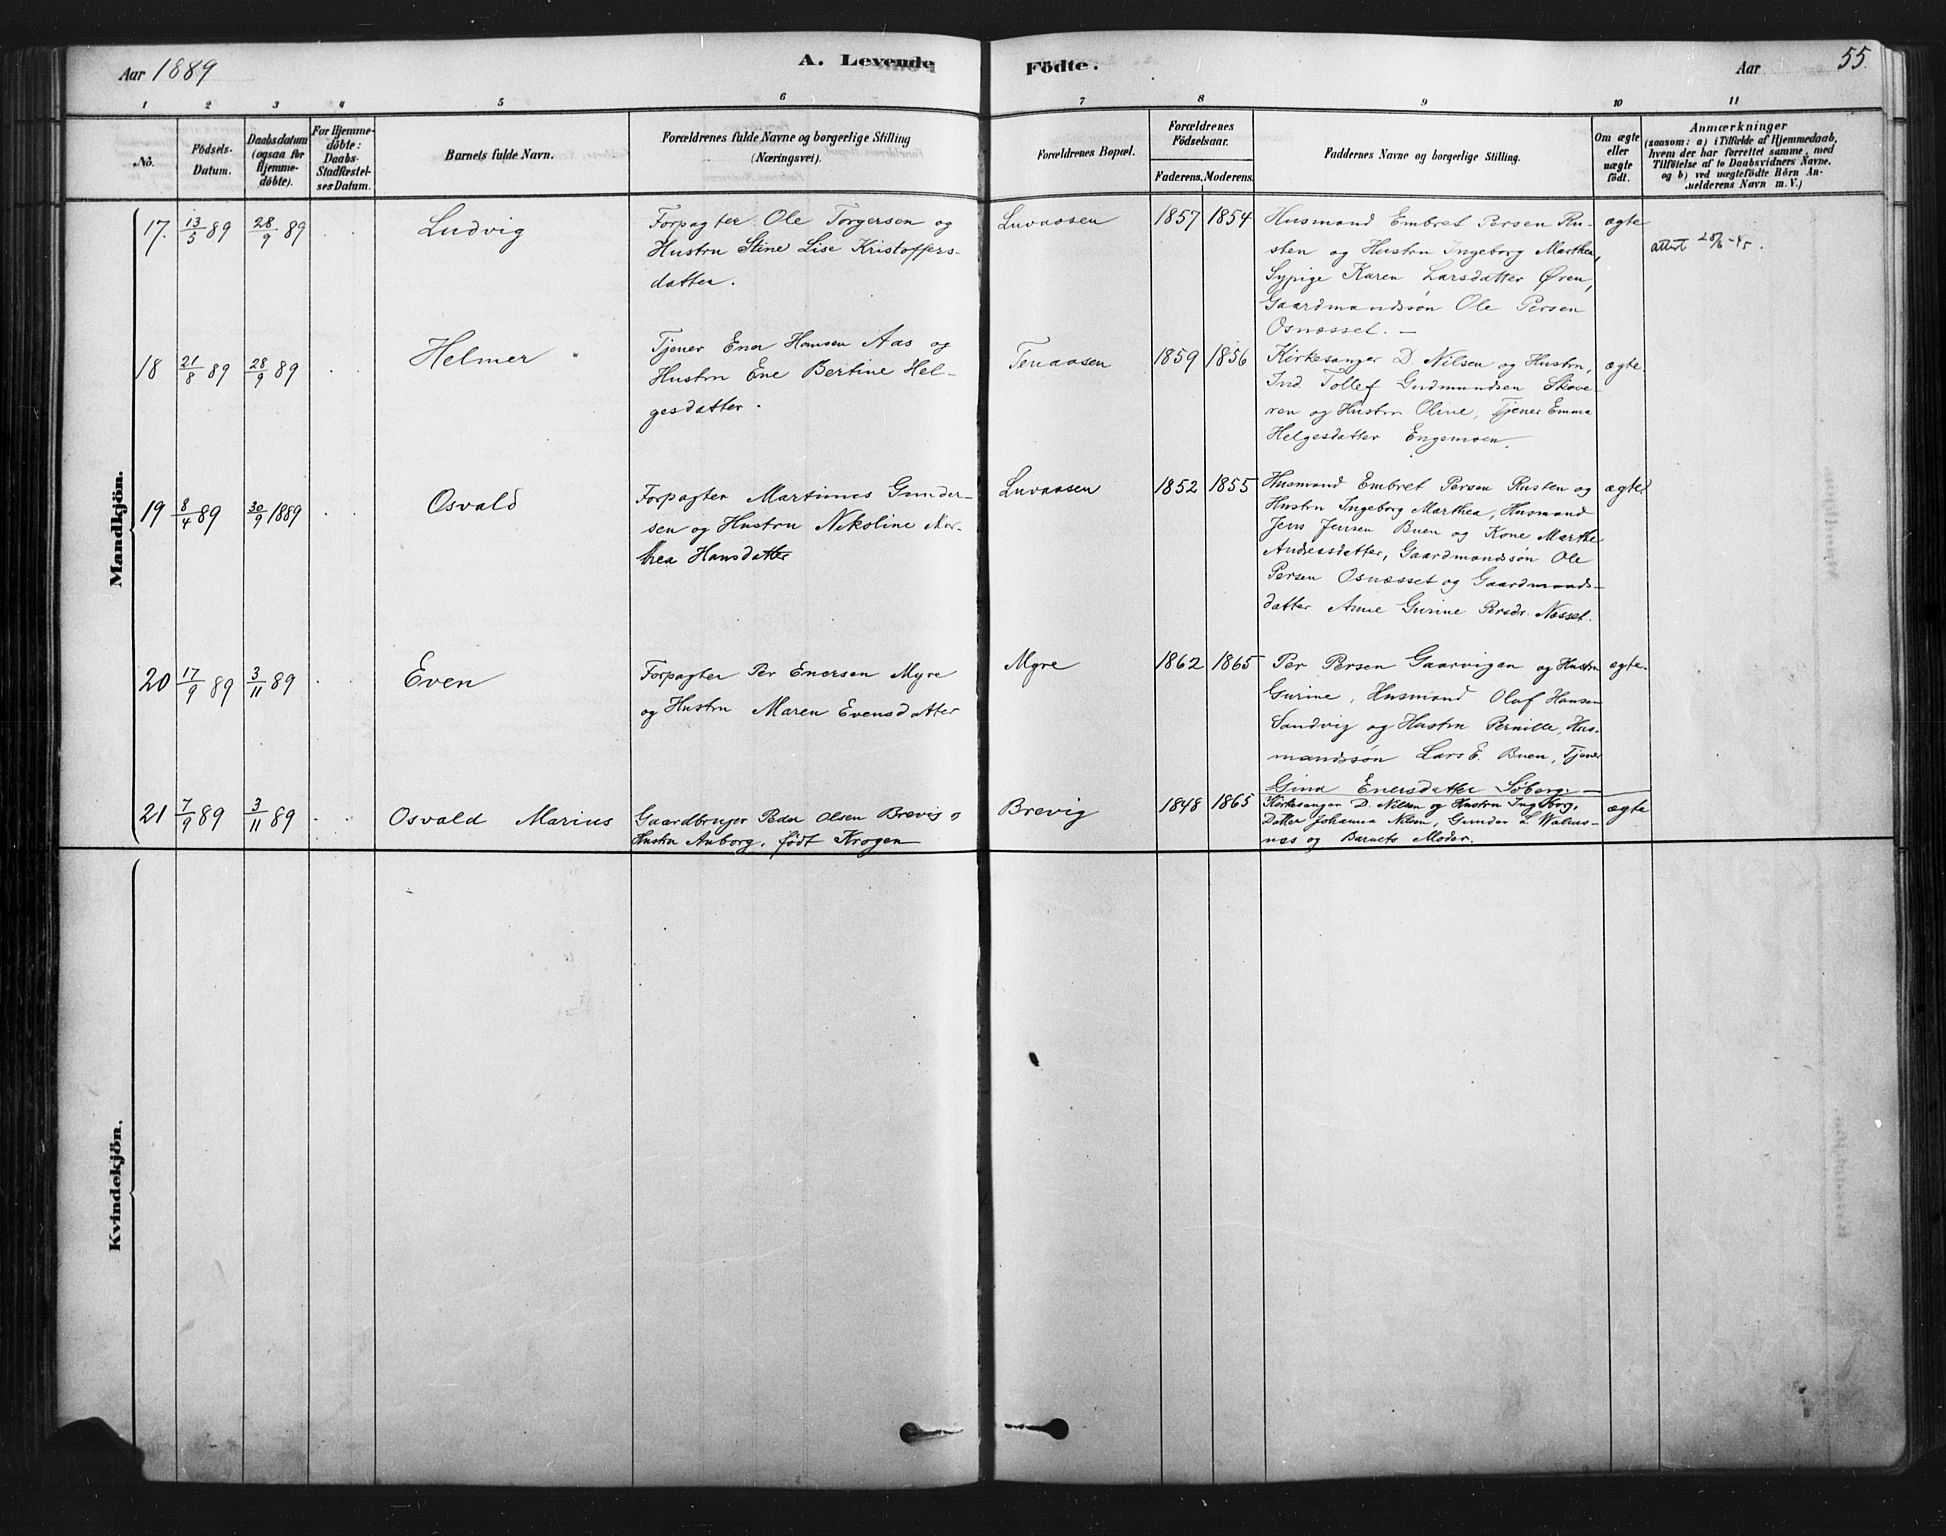 Aar 1889
A. Levende Födte.
Aar
55.
1 2 3 4 5 6 7 8 9 10 11
No.
Födsels-
Datum.
Daabsdatum
(ogsaa for
Hjemme-
döbte).
For Hjemme-
döbte:
Daabs-
Stadfestel-
ses Datum.
Barnets fulde Navn.
Forældrenes fulde Navne og borgerlige Stilling
(Næringsvei).
Forældrenes Bopæl.
Forældrenes
Födselsaar.
Faderens. Moderens.
Faddernes Navne og borgerlige Stilling.
Om ægte
eller
uægte
födt.
Anmærkninger
(saasom: a) i Tilfælde af Hjemmedaab,
hvem der har forrettet samme, med
Tilföielse af to Daabsvidners Navne,
og b) ved uægtefödte Börn An-
melderens Navn m. V.)
Mandkjön.
17. 13/5 89 28/9 89 Ludvig
Forpagter Ole Torgersen og
Hustru Stine Lise Kristoffers-
datter.
Luvaasen 1857 1854
Husmand Embret Persen Ru-
sten og Hustru Ingeborg Marthea,
Sypige Karen Larsdatter Øren,
Gaardmandssøn Ole Persen
Osnæsset. —
ægte
attest 28/6-45.
18 21/8 89 28/9 89 Helmer
Tjener Ener Hansen Aas og
Hustru Ene Bertine Hel-
gesdatter.
Tenaasen 1859 1856
Kirkesanger D. Nilsen og Hustru,
Ind. Tollef Gudmundsen Skove-
ren og Hustru Oline, Tjener Emma
Helgesdatter Engemoen.
ægte
19 8/4 89 30/9 1889 Osvald
Forpagter Martinus Gunder-
sen og Hustru Nikoline Mar-
thea Hansdatter
Luvaasen 1852 1855
Husmand Embret Persen Rusten og
Hustru Ingeborg Marthea, Husmand
Jens Jensen Buen og Kone Marthe
Andreasdatter, Gaardmandssøn Ole
Persen Osnæsset og Gaardmands-
datter Anne Gurine Persdr. Næsset.
ægte
20 17/9 89 3/11 89 Even
Forpagter Per Enersen Myre
og Hustru Maren Evensdatter
Myre 1862 1865
Per Persen Gaarvigen og Hustru
Gurine, Husmand Oluf Hansen
Sandvig og Hustru Pernille, Hus-
mandssøn Lars E. Buen, Tjener
Gina Enersdatter Søberg. —
ægte.
21 7/9 89 3/11 89 Osvald Marius
Gaardbruger Peder Olsen Brevig o
Hustru Anborg, født Krogen
Brevig 1848 1865
Kirkesanger D. Nilsen og Hustru Ingeborg,
Datter Johanna Nilsen, Gunder L. Walms-
næs og Barnets Moder.
ægte
Kvindekjön.